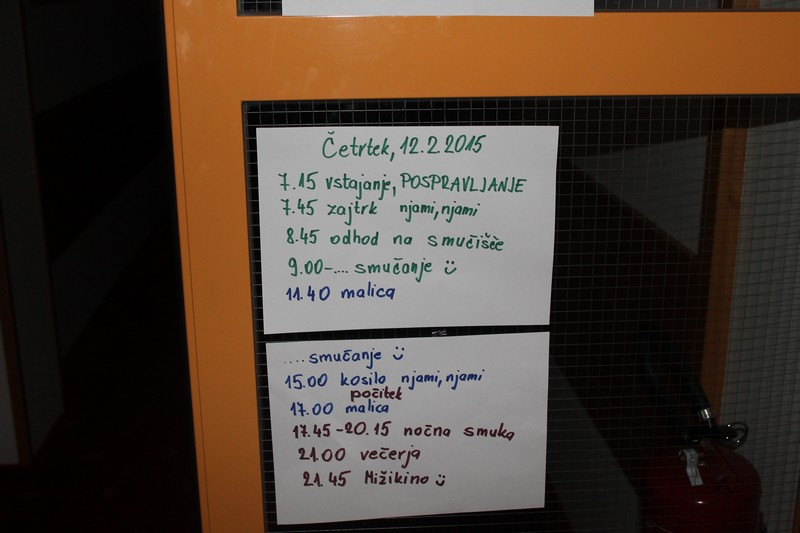 Četrtek, 12.2.2015
7.15 vstajanje, POSPRAVLJANJE
7.45 zajtrk njami, njami
8.45 odhod na smučišče
9.00-.... smučanje ü
11.40 malica
.... smučanje ü
15.00 kosilo njami, njami
počitek
17.00 malica
17.45-20.15 nočna smuka
21.00 večerja
21.45 Mižikino ü